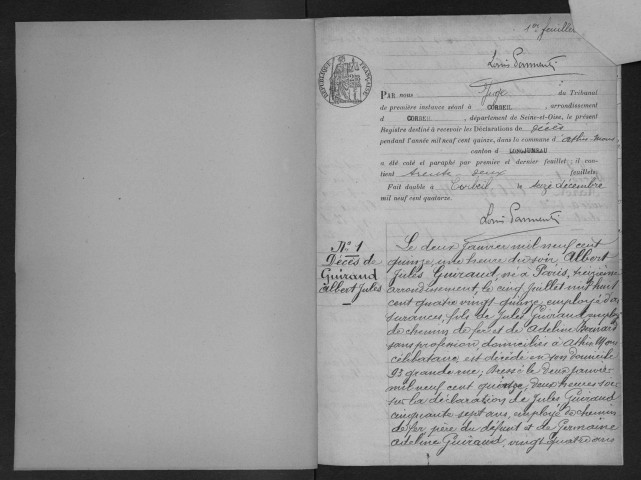 1er feuillet
Louis Parmenti
RÉPUBLIQUE FRANÇAISE
PAR nous Juge du Tribunal
de première instance séant à CORBEIL, arrondissement
d CORBEIL, département de Seine-et-Oise, le présent
Registre destiné à recevoir les Déclarations de décès
pendant l'année mil neuf cent quinze, dans la commune d'Athis-Mons
canton d LONGJUMEAU
a été coté et paraphé par premier et dernier feuillet, il con-
tient trente deux feuillets.
Fait double à Corbeil le seize décembre
mil neuf cent quatorze.
Louis Parmenti
No 1
Décès de
Guiraud
Albert Jules
Le deux Janvier mil neuf cent
quinze, une heure du soir, Albert
Jules Guiraud, né à Paris, treizième
arrondissement, le cinq juillet mil huit
cent quatre vingt quinze, employé d'as
surances, fils de Jules Guiraud, employé
de chemin de fer et de Adeline Bernard
sans profession, domiciliés à Athis Mons
célibataire, est décédé en son domicile
93 grande rue; Dressé le deux janvier
mil neuf cent quinze, deux heures soir
sur la déclaration de Jules Guiraud
cinquante sept ans, employé de chemin
de fer, père du défunt et de Germaine
Adeline Guiraud, vingt quatre ans